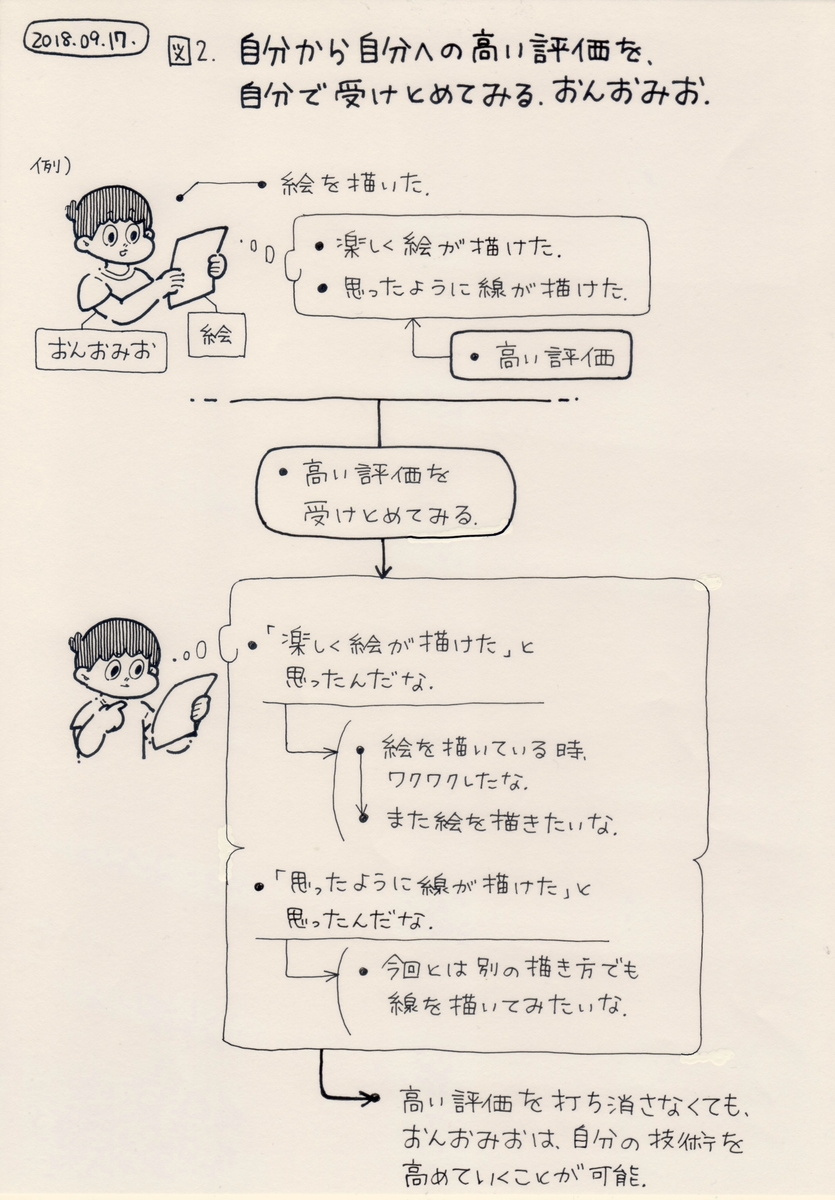 2018.09.17.
図2. 自分から自分への高い評価を、
自分で受けとめてみる。おんおみお.
例)
絵を描いた。
・楽しく絵が描けた.
・思ったように線が描けた。
おんおみお
絵
・高い評価
・高い評価を
受けとめてみる。
・「楽しく絵が描けた」と
思ったんだな。
・絵を描いている時、
ワクワクしたな。
・また絵を描きたいな。
・「思ったように線が描けた」と
思ったんだな。
・今回とは別の描き方でも
線を描いてみたいな。
高い評価を打ち消さなくても、
おんおみおは、自分の技術を
高めていくことが可能。